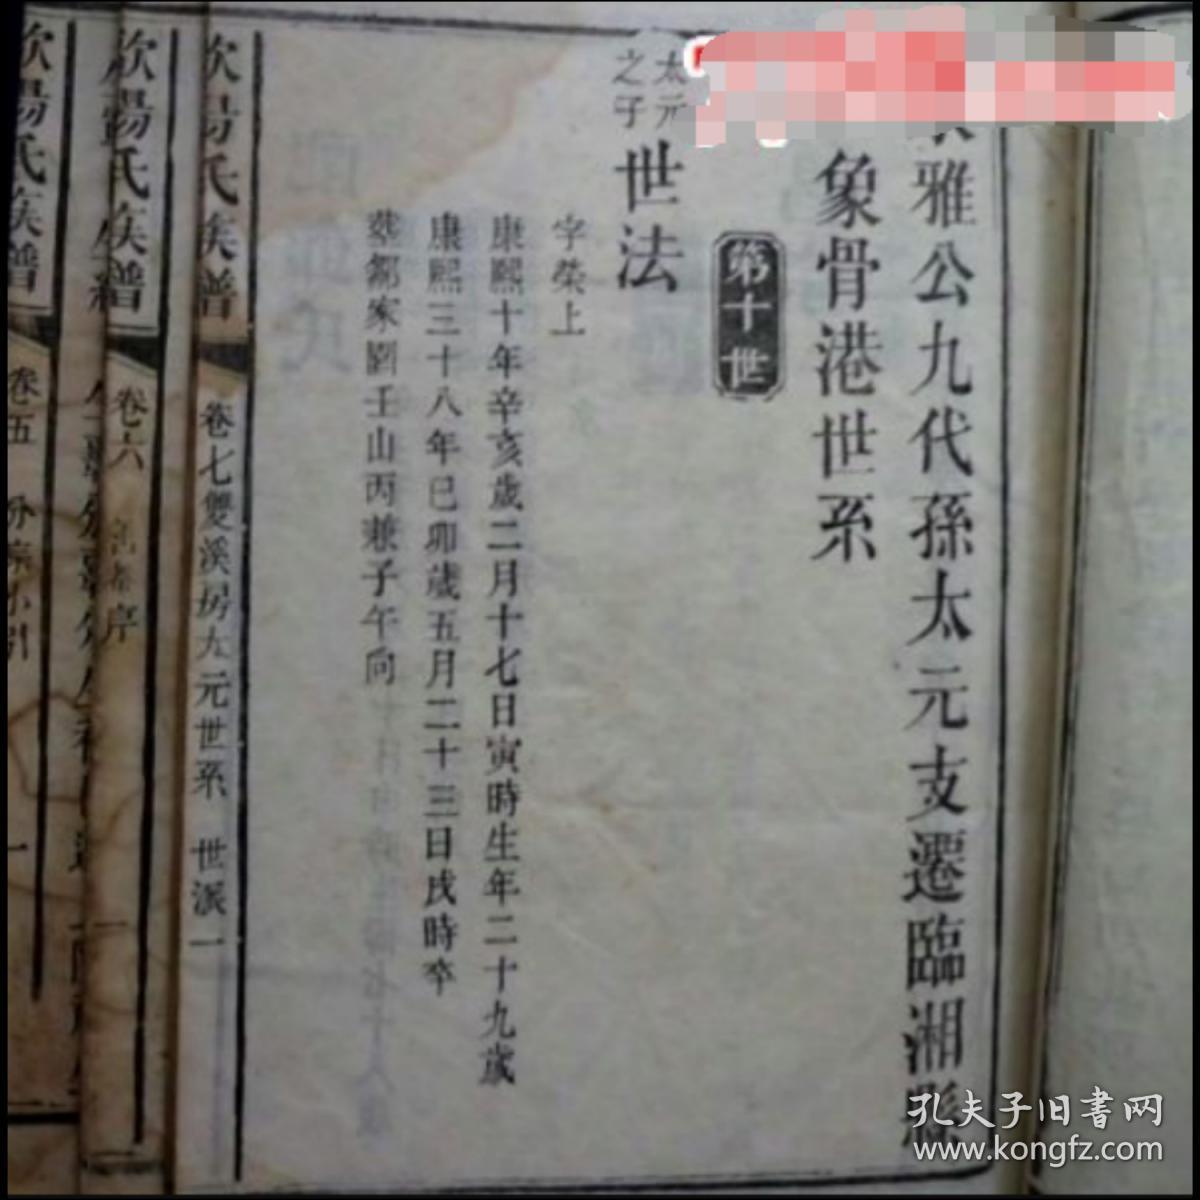 雅公九代孫太元支遷臨湘縣
象骨港世系
第十世
太元
之子
世法
字榮上
康熙十年辛亥歲二月十七日寅時生年二十九歲
康熙三十八年已卯歲五月二十三日戌時卒
葬鄒家劉壬山丙兼子午向
欧陽氏族譜
卷七雙溪房太元世系 世派一
氏族譜
卷六
序
一
氏族譜
卷五
小引
一
孔夫子旧书网
www.kongfz.com